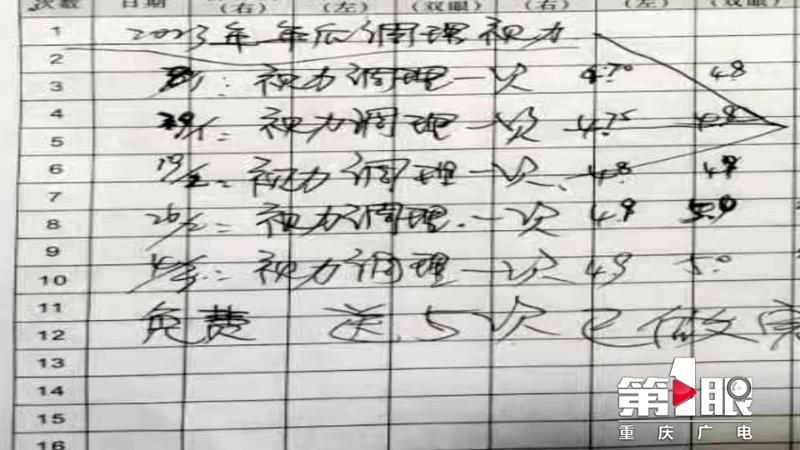 次数 日期 (右) (左) (双眼) (右) (左) (双眼)
1 2023年年后调理视力
2
3 视力调理一次 4.7° 48
4 视力调理一次 4.75 48
5
6 19/2: 视力调理一次. 48 49
7
8 26/2: 视力调理.一次 49 5.0
9
10 视力调理一次 49 5.0
11
12 免费 送 5次 已做完
13
14
15
16
第1眼
重庆广电